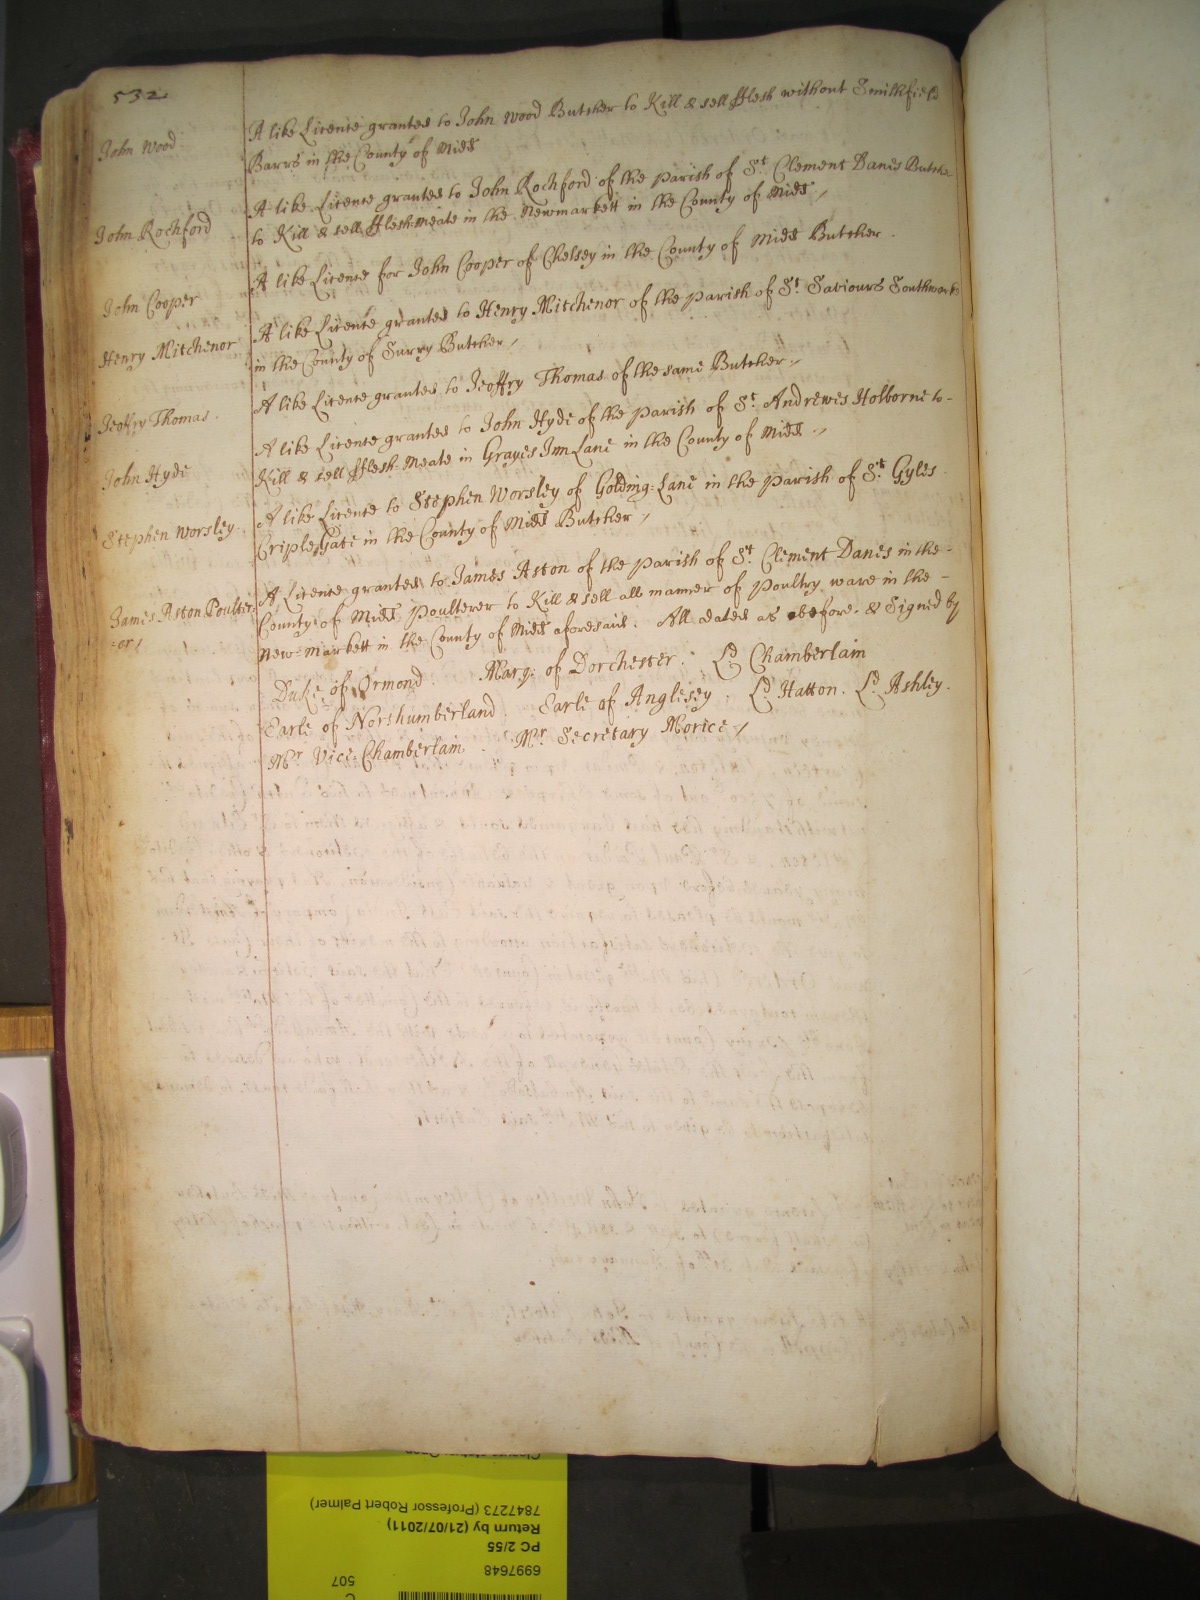 532
John Wood
A like Licence granted to John Wood Butcher to Kill & sell fflesh without Smithfield
Barrs in the County of Midd
John Rochford
A like Licence granted to John Rochford of the parish of St Clement Danes Butcher
to Kill & sell fflesh-meate in the Newmarkett in the County of Midd
John Cooper
A like Licence for John Cooper of Chelsey in the County of Midd Butcher
Henry Mitchenor
A like Licence granted to Henry Mitchenor of the parish of St Saviours Southwark
in the County of Surry Butcher
Jeoffry Thomas
A like Licence granted to Jeoffry Thomas of the same Butcher
John Hyde
A like Licence granted to John Hyde of the parish of St Andrewes Holborne to
Kill & sell fflesh-Meate in Grayes Inn Lane in the County of Midd
Stephen Worsley
A like Licence to Stephen Worsley of Golding-Lane in the parish of St Gyles
Criple Gate in the County of Midd Butcher
James Aston Poulter-
-or
A Licence granted to James Aston of the Parish of St Clement-Danes in the
County of Midd Poulterer to Kill & sell all manner of Poultry ware in the
New-markett in the County of Midd aforesaid. All dated as before. & Signed by
Duke of Ormond. Marq: of Dorchester. Ld Chamberlain
Earle of Northumberland. Earle of Anglesey. Ld Hatton. Ld Ashley.
Mr Vice-Chamberlain. Mr Secretary Morice
507
6997648
PC 2/55
Return by (21/07/2011)
7847273 (Professor Robert Palmer)